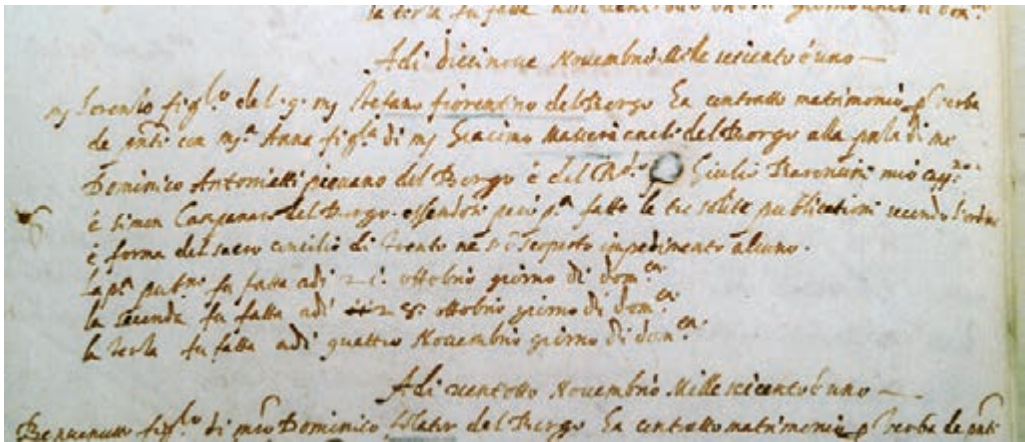 la terza fu fatta
Adi diccinove Novembrio Mille seicento è uno
mj Lorenzo fig.lo del q. mj Stefano fiorentino del Borgo Ea contratto matrimonio p verba
de pnti con mj.a Anna fig.la di mj Giacimo del Borgo alla pnza di me
Dominico Antonietti pievano del Borgo è del R.do Giulio mio
è Simon del Borgo essendosi però p.a fatte le tre solite publicationi secondo l'ordine
è forma del sacro concilio di Trento ne s'è scoperto impedimento alcuno.
la p.a pub.ne fu fatta adi 21 ottobrio giorno di dom.ca
la seconda fu fatta adi 28 ottobrio giorno di dom.ca
la terza fu fatta adi quattro Novembrio giorno di dom.ca
Adi ventotto Novembrio Mille seicento è uno
Benvenuto fig.lo di Dominico del Borgo Ea contratto matrimonio p verba de pnti